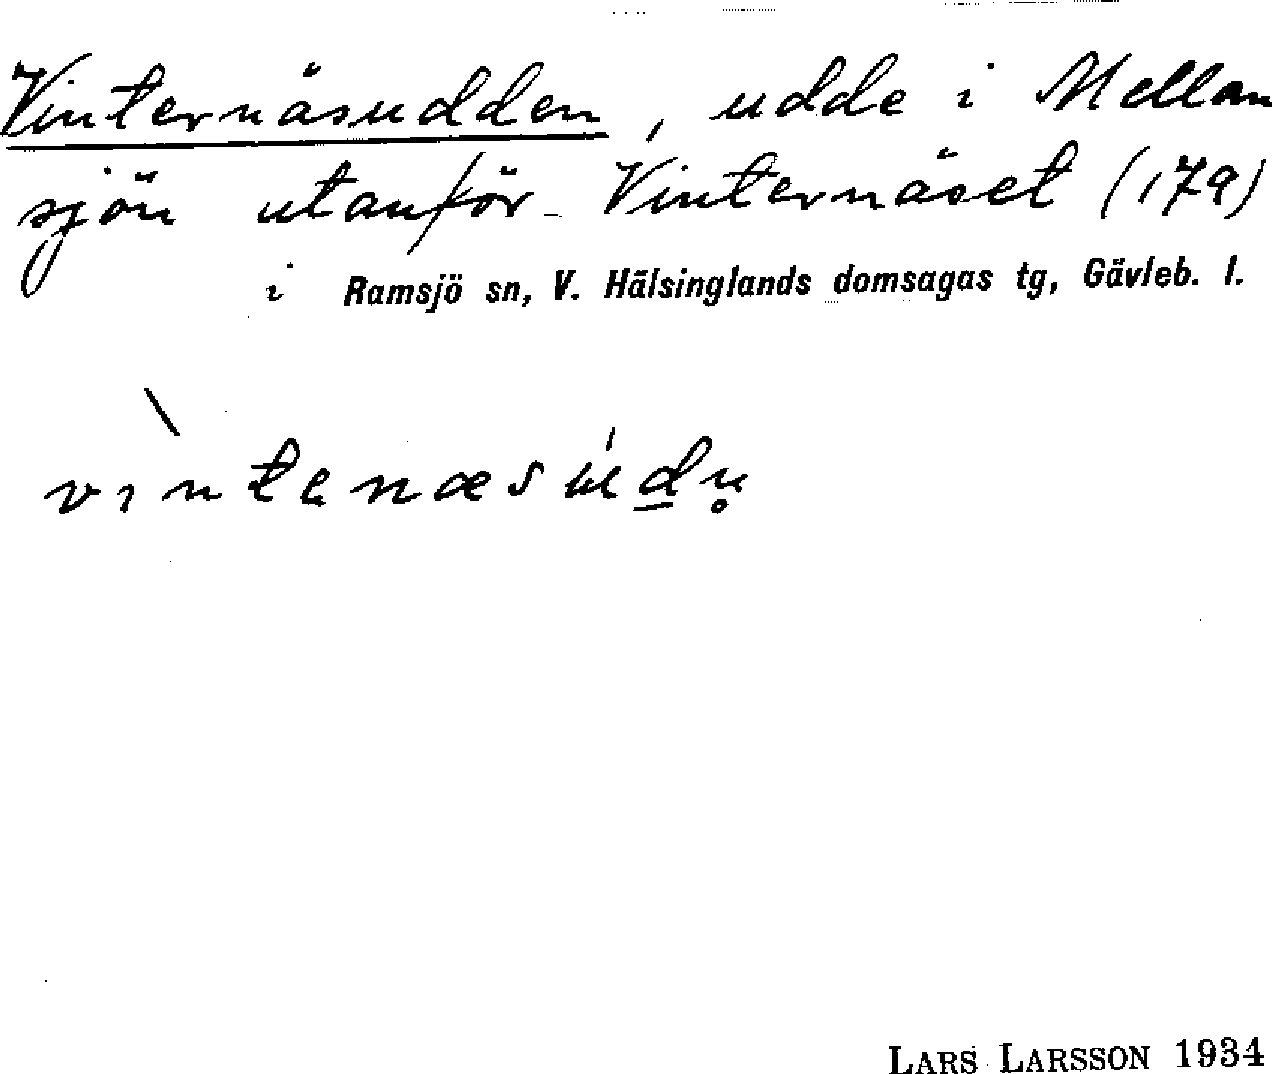 Vinternäsudden, udde i Mellan
sjön utanför Vinternäset (179)
i Ramsjö sn, V. Hälsinglands domsagas tg, Gävleb. l.
vìntenæsúdn̥
LARS LARSSON 1934